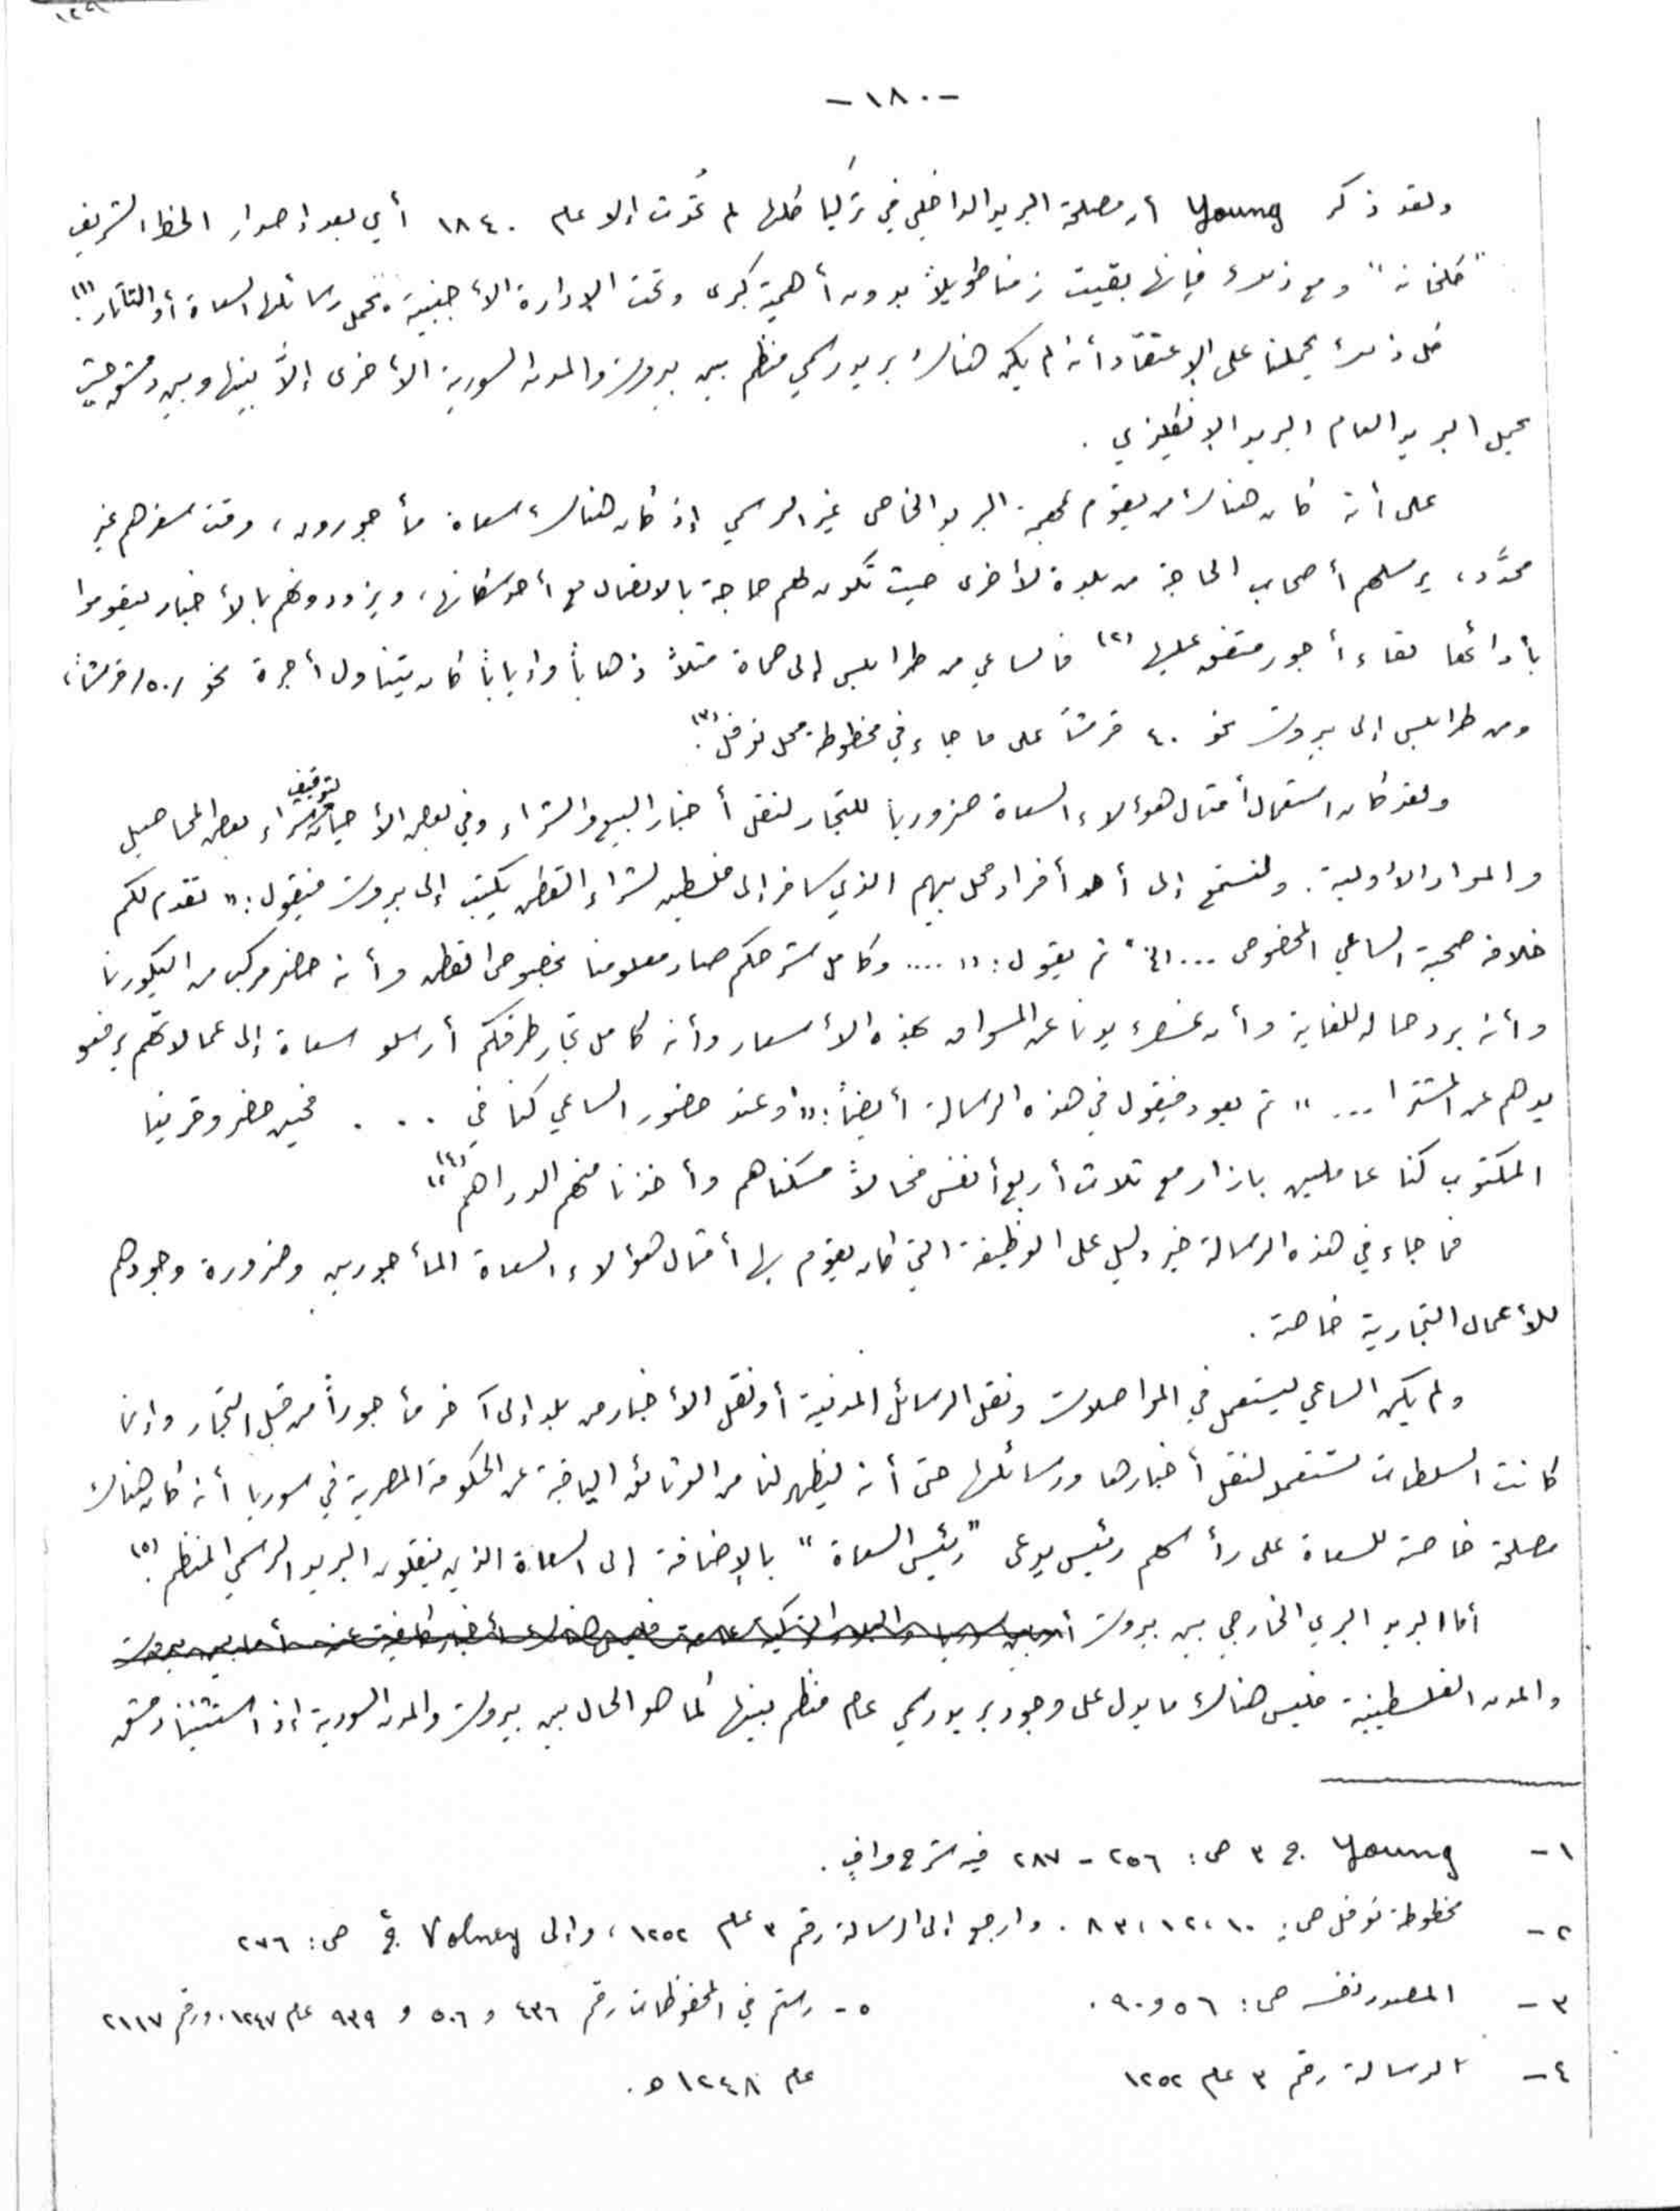 -١٨٠-
ولقد ذكر Young أن مصلحة البريد الداخلي في تركيا كلها لم تحدث إلا عام ١٨٤٠ أي بعد إصدار الخط الشريف
"كلخانه" ومع ذلك فإنها بقيت زمنا طويلاً بدون أهمية كبرى وتحت الإدارة الأجنبية تحمل رسائلها السعاة أو التاتار(١).
كل ذلك يحملنا على الإعتقاد أنه لم يكن هناك بريد رسمي منظم بين بيروت والمدن السورية الأخرى إلاَّ بينها وبين دمشق حيث
يحمل البريد العام البريد الإنكليزي .
على أنه كان هناك من يقوم بمهمة البريد الخاص غير الرسمي إذ كان هناك سعاة مأجورون، وقت سفرهم غير
محدَّد، يرسلهم أصحاب الحاجة من بلدة لأخرى حيث تكون لهم حاجة بالاتصال مع أحد سكانها، ويزودونهم بالأخبار ليقوموا
بأدائها لقاء أجور متفق عليها (٢) فالساعي من طرابلس إلى حماة مثلاً ذهاباً وإياباً كان يتناول أجرة نحو /٥٠/ قرشاً،
ومن طرابلس إلى بيروت نحو ٤٠ قرشاً على ما جاء في مخطوطة محل نوفل(٣).
ولقد كان استعمال أمثال هؤلاء السعاة ضرورياً للتجار لنقل أخبار البيع والشراء وفي بعض الأحيان لتوقيف شراء بعض المحاصيل
والمواد الأولية. ولنستمع إلى أحد أفراد محل بيهم الذي سافر إلى فلسطين لشراء القطن يكتب إلى بيروت فيقول: " تقدم لكم
خلافه صحبة الساعي المخصوص ... الخ" ثم يقول: " .... وكامل شرحكم صار معلومنا بخصوص القطن وأنه حضر مركب من اليكورنا
وأنه برد حاله للغاية وأن نمسك يدنا عن المسواق بهذه الأسعار وأنه كامل تجار طرفكم أرسلو سعاة إلى عملاتهم يرفعو
يدهم عن المشترا ... " ثم يعود فيقول في هذه الرسالة أيضاً: " وعند حضور الساعي كنا في . . . فحين حضر وقرينا
المكتوب كنا عاملين بازار مع تلات أربع أنفس فحالاً مسكناهم وأخذنا منهم الدراهم"(٤)
فما جاء في هذه الرسالة خير دليل على الوظيفة التي كان يقوم بها أمثال هؤلاء السعاة المأجورين وضرورة وجودهم
للأعمال التجارية خاصة .
ولم يكن الساعي ليستعمل في المواصلات ونقل الرسائل المدنية أو نقل الأخبار من بلد إلى آخر مأجوراً من قبل التجار وإنما
كانت السلطات تستعمله لنقل أخبارها ورسائلها حتى أنه ليظهر لنا من الوثائق الباقية عن الحكومة المصرية في سوريا أنه كان هناك
مصلحة خاصة للسعاة على رأسهم رئيس يدعى "رئيس السعاة" بالإضافة إلى السعاة الذين ينقلون البريد الرسمي المنظم(٥).
أما البريد البري الخارجي بين بيروت
والمدن الفلسطينية فليس هناك ما يدل على وجود بريد رسمي عام منظم بينها كما هو الحال بين بيروت والمدن السورية إذا استثنينا دمشق
١- Young ج ٣ ص: ٢٥٦ - ٢٨٧ فيه شرح وافٍ .
٢- مخطوطة نوفل ص: ١٠، ١٢، ٨٣ . وارجع إلى الرسالة رقم ٣ عام ١٢٥٢، وإلى Volney ج ص: ٢٧٦
٣- المصدر نفسه ص: ٥٦ و ٩٠ .
٤- الرسالة رقم ٣ عام ١٢٥٢
٥- رستم في المحفوظات رقم ٤٣٦ و ٥٠٦ و ٩٣٩ عام ١٢٤٧. ورقم ٢١١٧
عام ١٢٤٨ هـ.